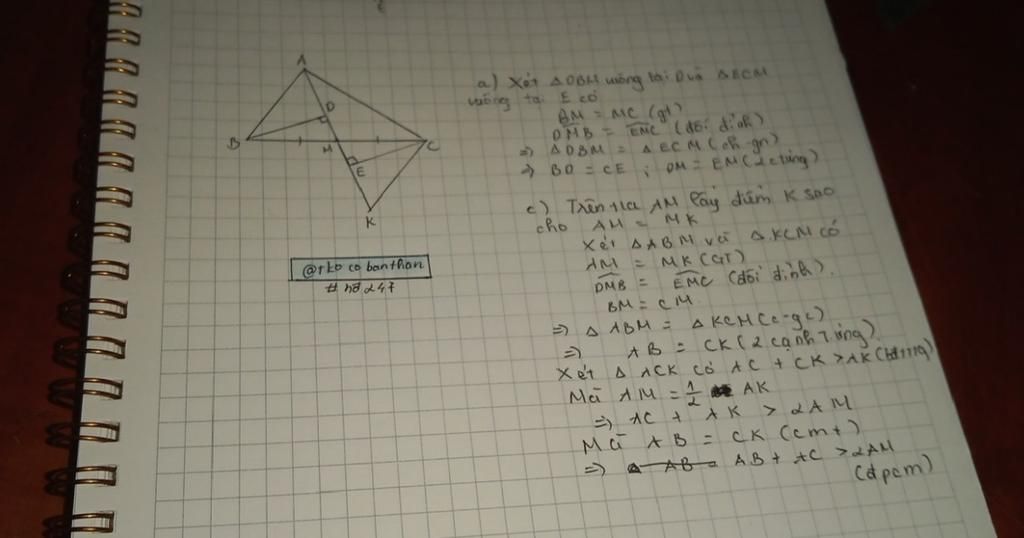 A
D
B
M
C
E
K
@rko co banthan
# hđ247
a) Xét ΔDBM vuông tại D và ΔECM
vuông tại E có
BM = MC (gt)
DMB = EMC (đối đỉnh)
=> ΔDBM = ΔECM (ch-gn)
=> BD = CE ; DM = EM (2c tứng)
c) Trên tia AM lấy điểm K sao
cho AM = MK
Xét ΔABM và ΔKCM có
AM = MK (GT)
DMB = EMC (đối đỉnh).
BM = CM.
=> ΔABM = ΔKCM (c-gc)
=> AB = CK (2 cạnh tứng)
Xét ΔACK có AC + CK > AK (bđttg)
Mà AM = 1/2 AK
=> AC + AK > 2AM
Mà AB = CK (cmt)
=> AB + AC > 2AM
(đpcm)